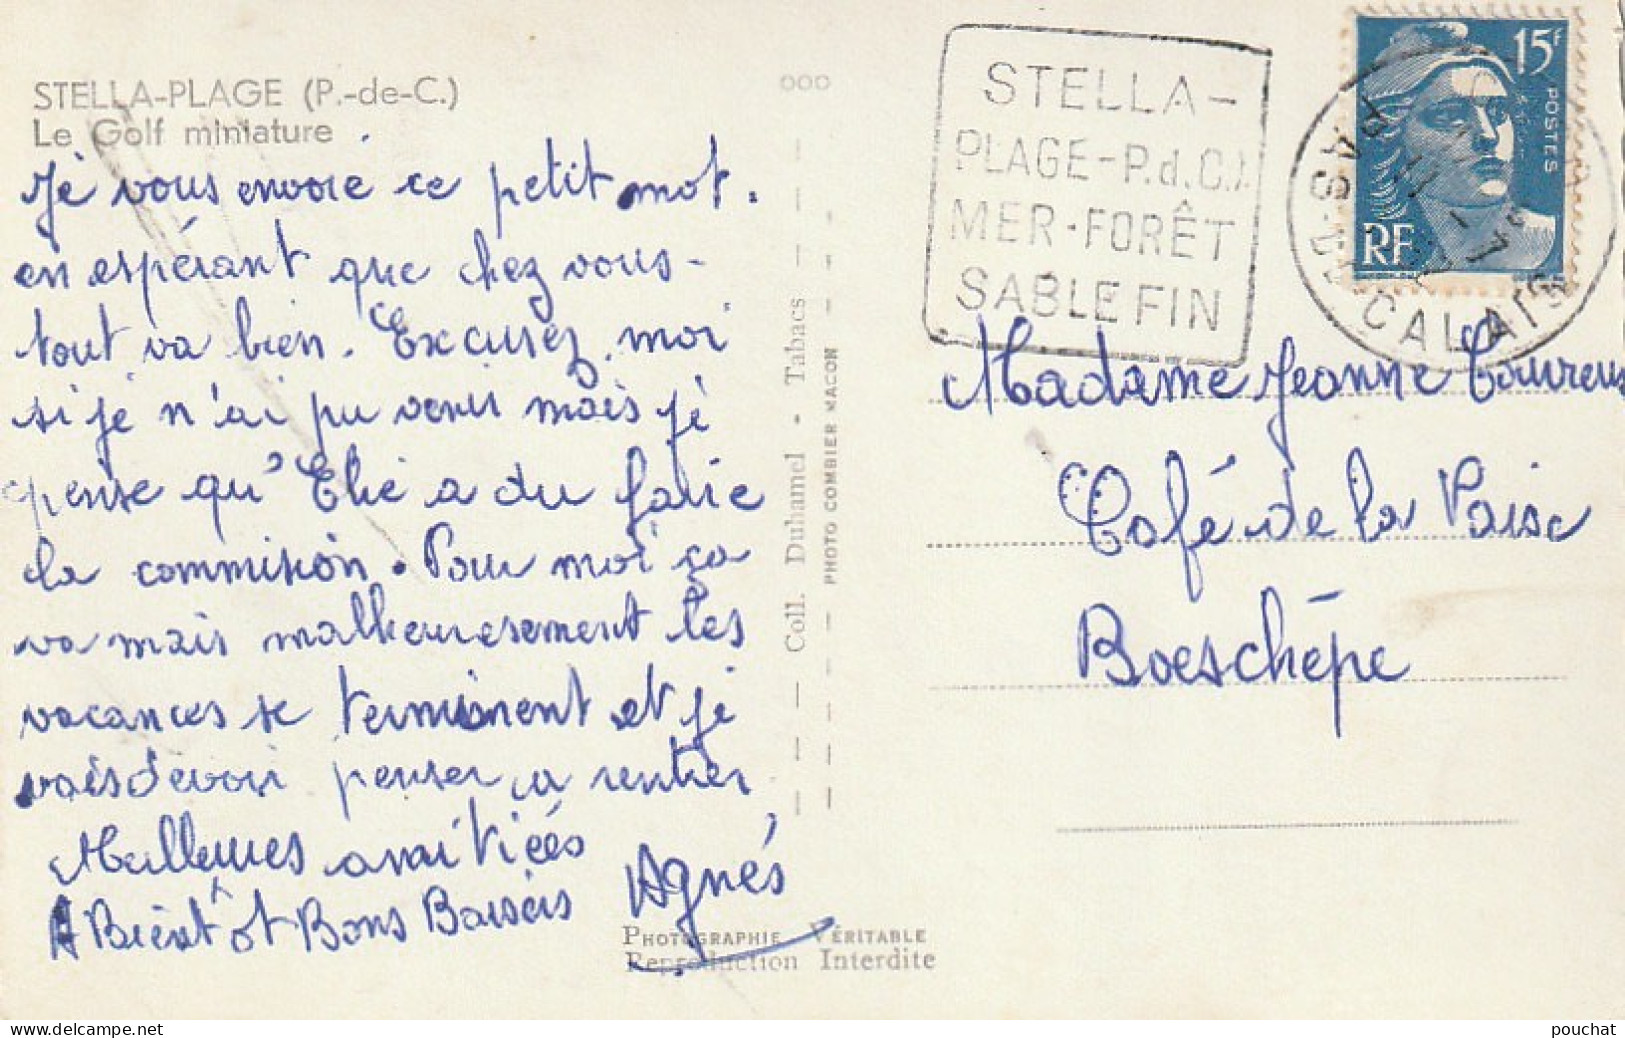 STELLA-PLAGE (P.-de-C.)
Le Golf miniature
Je vous envoie ce petit mot.
en espérant que chez vous-
tout va bien. Excusez, moi
si je n'ai pu venir mais je
pense qu'Elie a du faire
la commission. Pour moi ça
va mais malheureusement les
vacances se terminent et je
vais devoir penser a rentrer
Meilleures amitiées
A Bientôt Bons Baisers Agnés
ooo
Coll. Duhamel - Tabacs
PHOTO COMBIER MACON
PHOTOGRAPHIE VÉRITABLE
Reproduction Interdite
STELLA-
PLAGE-P.d.C.)
MER-FORÊT
SABLE FIN
15F
POSTES
RF
PAS-DE-CALAIS
Madame Jeanne
Café de la Paix
Boeschépe
delcampe.net
pouchat